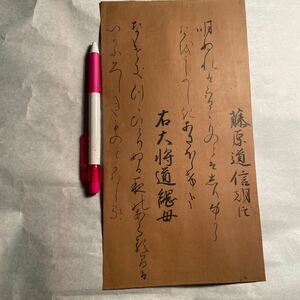 藤原道信朝臣
明ぬれはくるゝものとはしりなから
なをうらめしきあさほらけかな
右大将道綱母
なけきつゝひとりぬる夜のあくるまは
いかに久しきものとかはしる